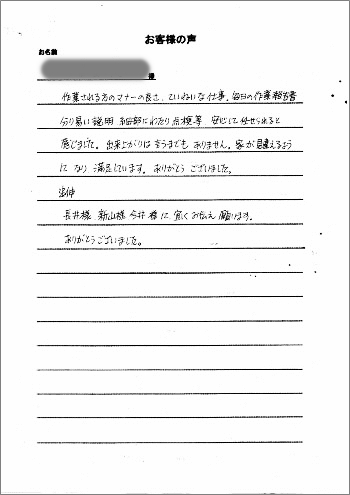 お客様の声
お名前
様
作業される方のマナーの良さ、ていねいな仕事、毎日の作業報告書
分り易い説明 細部にわたり点検等 安心して任せられると
感じました。出来上がりは言うまでも ありません。家が見違えるよう
に なり 満足しています。ありがとう ございました。
追伸
長井様 新山様 今井様に 宜くお伝え 願います。
ありがとうございました。